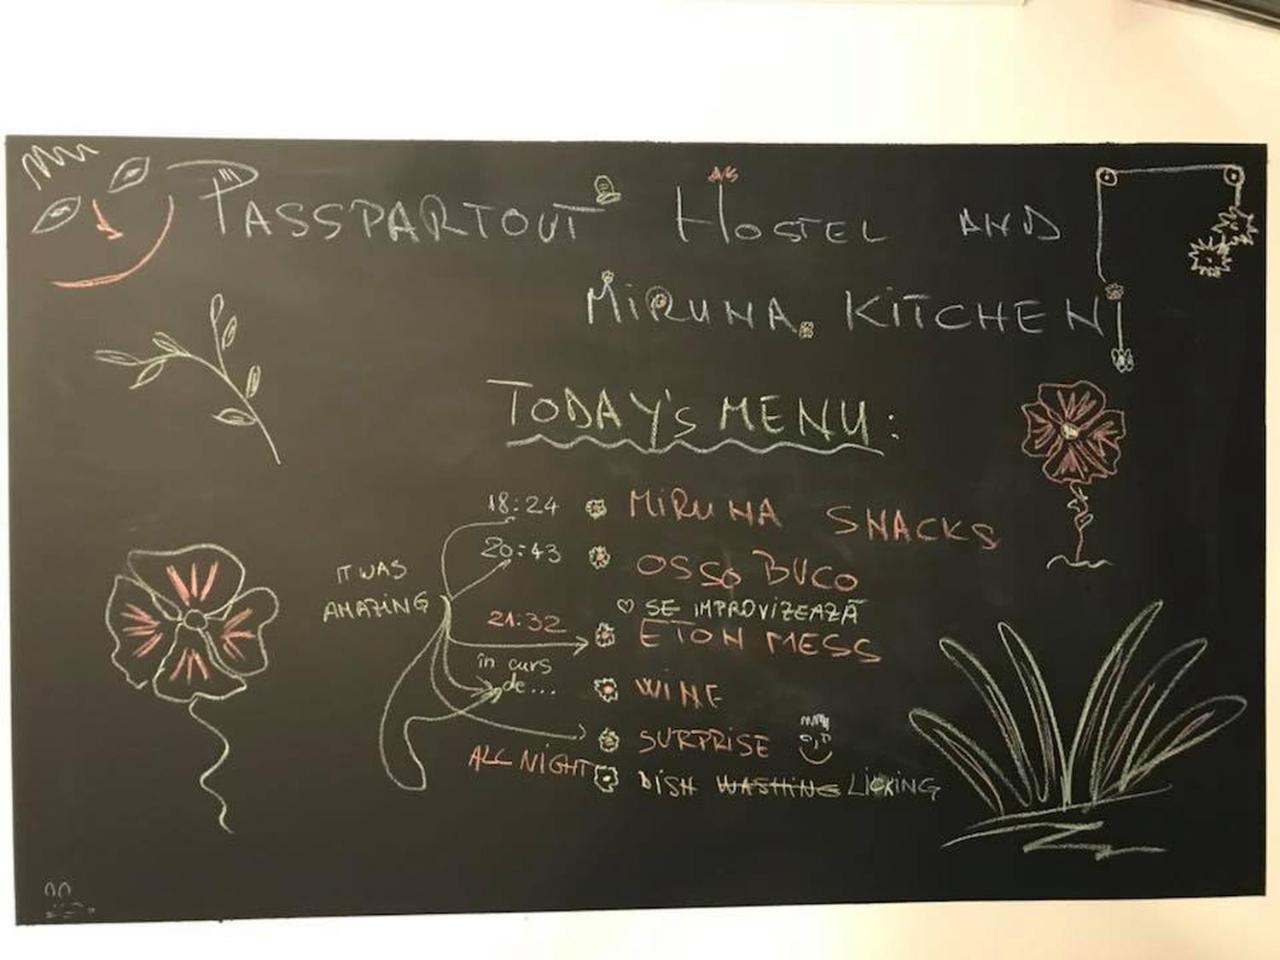 PASSPARTOUT HOSTEL AND
MIRUNA KITCHEN
TODAY'S MENU:
18:24 MIRUNA SNACKS
20:43 OSSO BUCO
IT WAS
AMAZING
♡ SE IMPROVIZEAZĂ
21:32 ETON MESS
în curs
de... WINE
SURPRISE
ALL NIGHT DISH WASHING LICKING